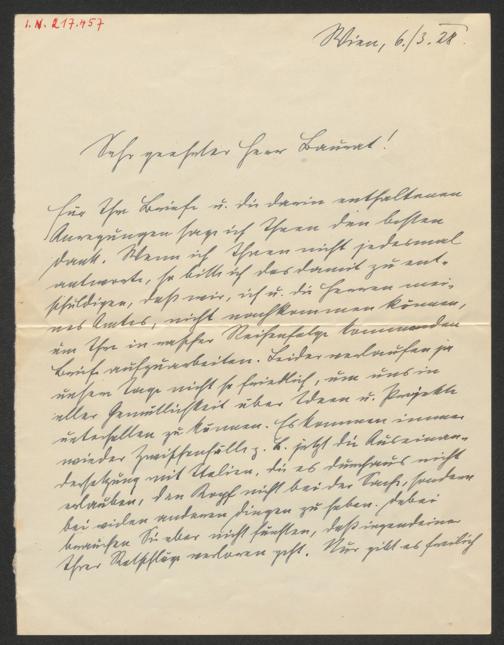 I.N. 217.457
Wien, 6./3. 28.
Sehr geehrter Herr Baurat!
Für Ihre Briefe u. die darin enthaltenen
Anregungen sage ich Ihnen den besten
Dank. Wenn ich Ihnen nicht jedesmal
antworte, so bitte ich das damit zu ent-
schuldigen, daß wir, ich u. die Herren mei-
nes Amtes, nicht nachkommen können,
um Ihre in rascher Reihenfolge kommenden
Briefe aufzuarbeiten. Leider verlaufen ja
unsere Tage nicht so friedlich, um uns in
aller Gemütlichkeit über Ideen u. Projekte
unterhalten zu können. Es kommen immer
wieder Zwischenfälle z. B. jetzt die Auseinan-
dersetzung mit Italien, die es durchaus nicht
erlauben, den Kopf nicht bei der Sache, sondern
bei vielen anderen Dingen zu haben. Dabei
brauchen Sie aber nicht fürchten, daß irgendeiner
Ihrer Ratschläge verloren geht. Nur gibt es freilich